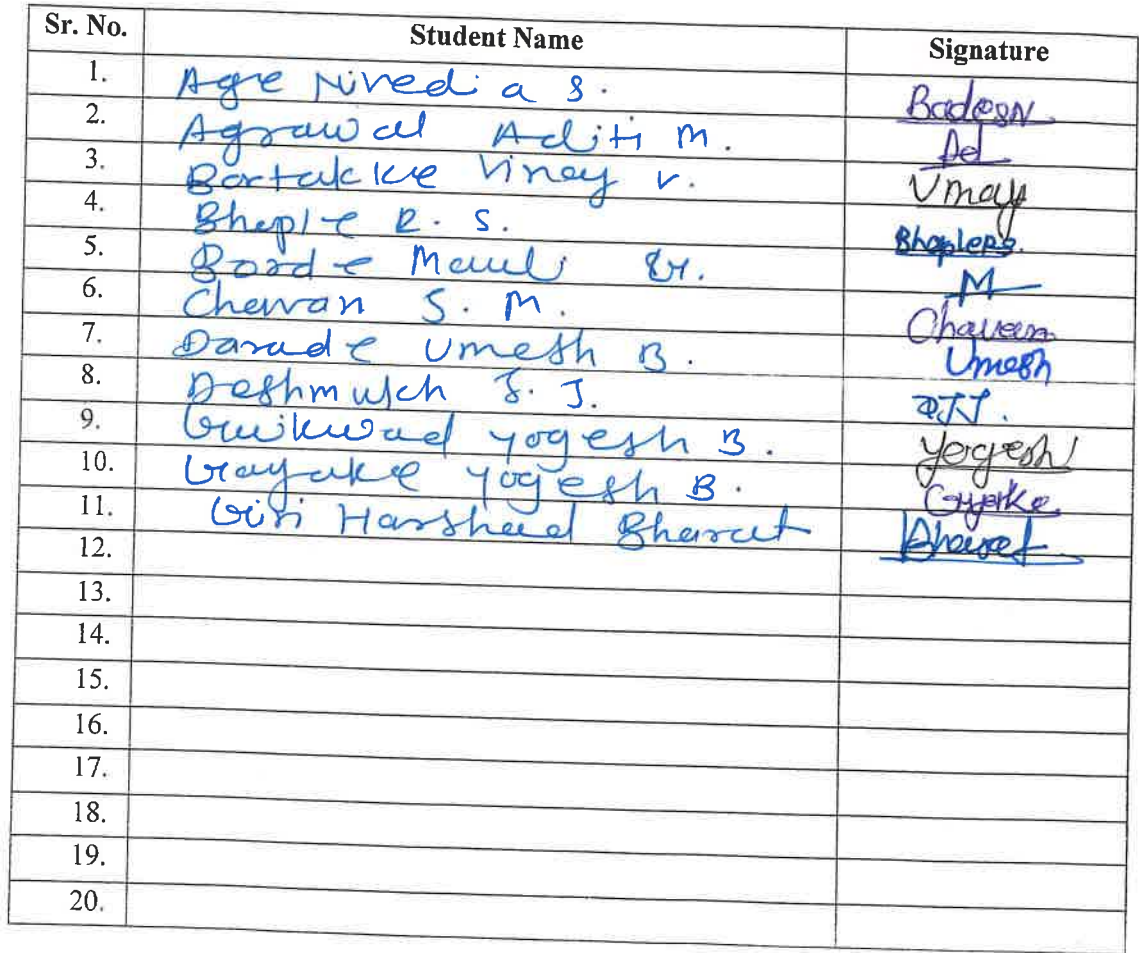 Sr. No. Student Name Signature
1. Age Nivedia S.
2. Agrawal Aditi M. Ad
3. Bartakke Vinay V. Vinay
4. Bhople R. S. BhopleRS.
5. Borde Mauli M
6. Chavan S. M. Chavan
7. Darade Umesh B. Umesh
8. Deshmukh S. J.
9. Gaikwad Yogesh B. Yogesh
10. Gayake Yogesh B. Gyake
11. Giri Harshad Bharat Bharat
12.
13.
14.
15.
16.
17.
18.
19.
20.